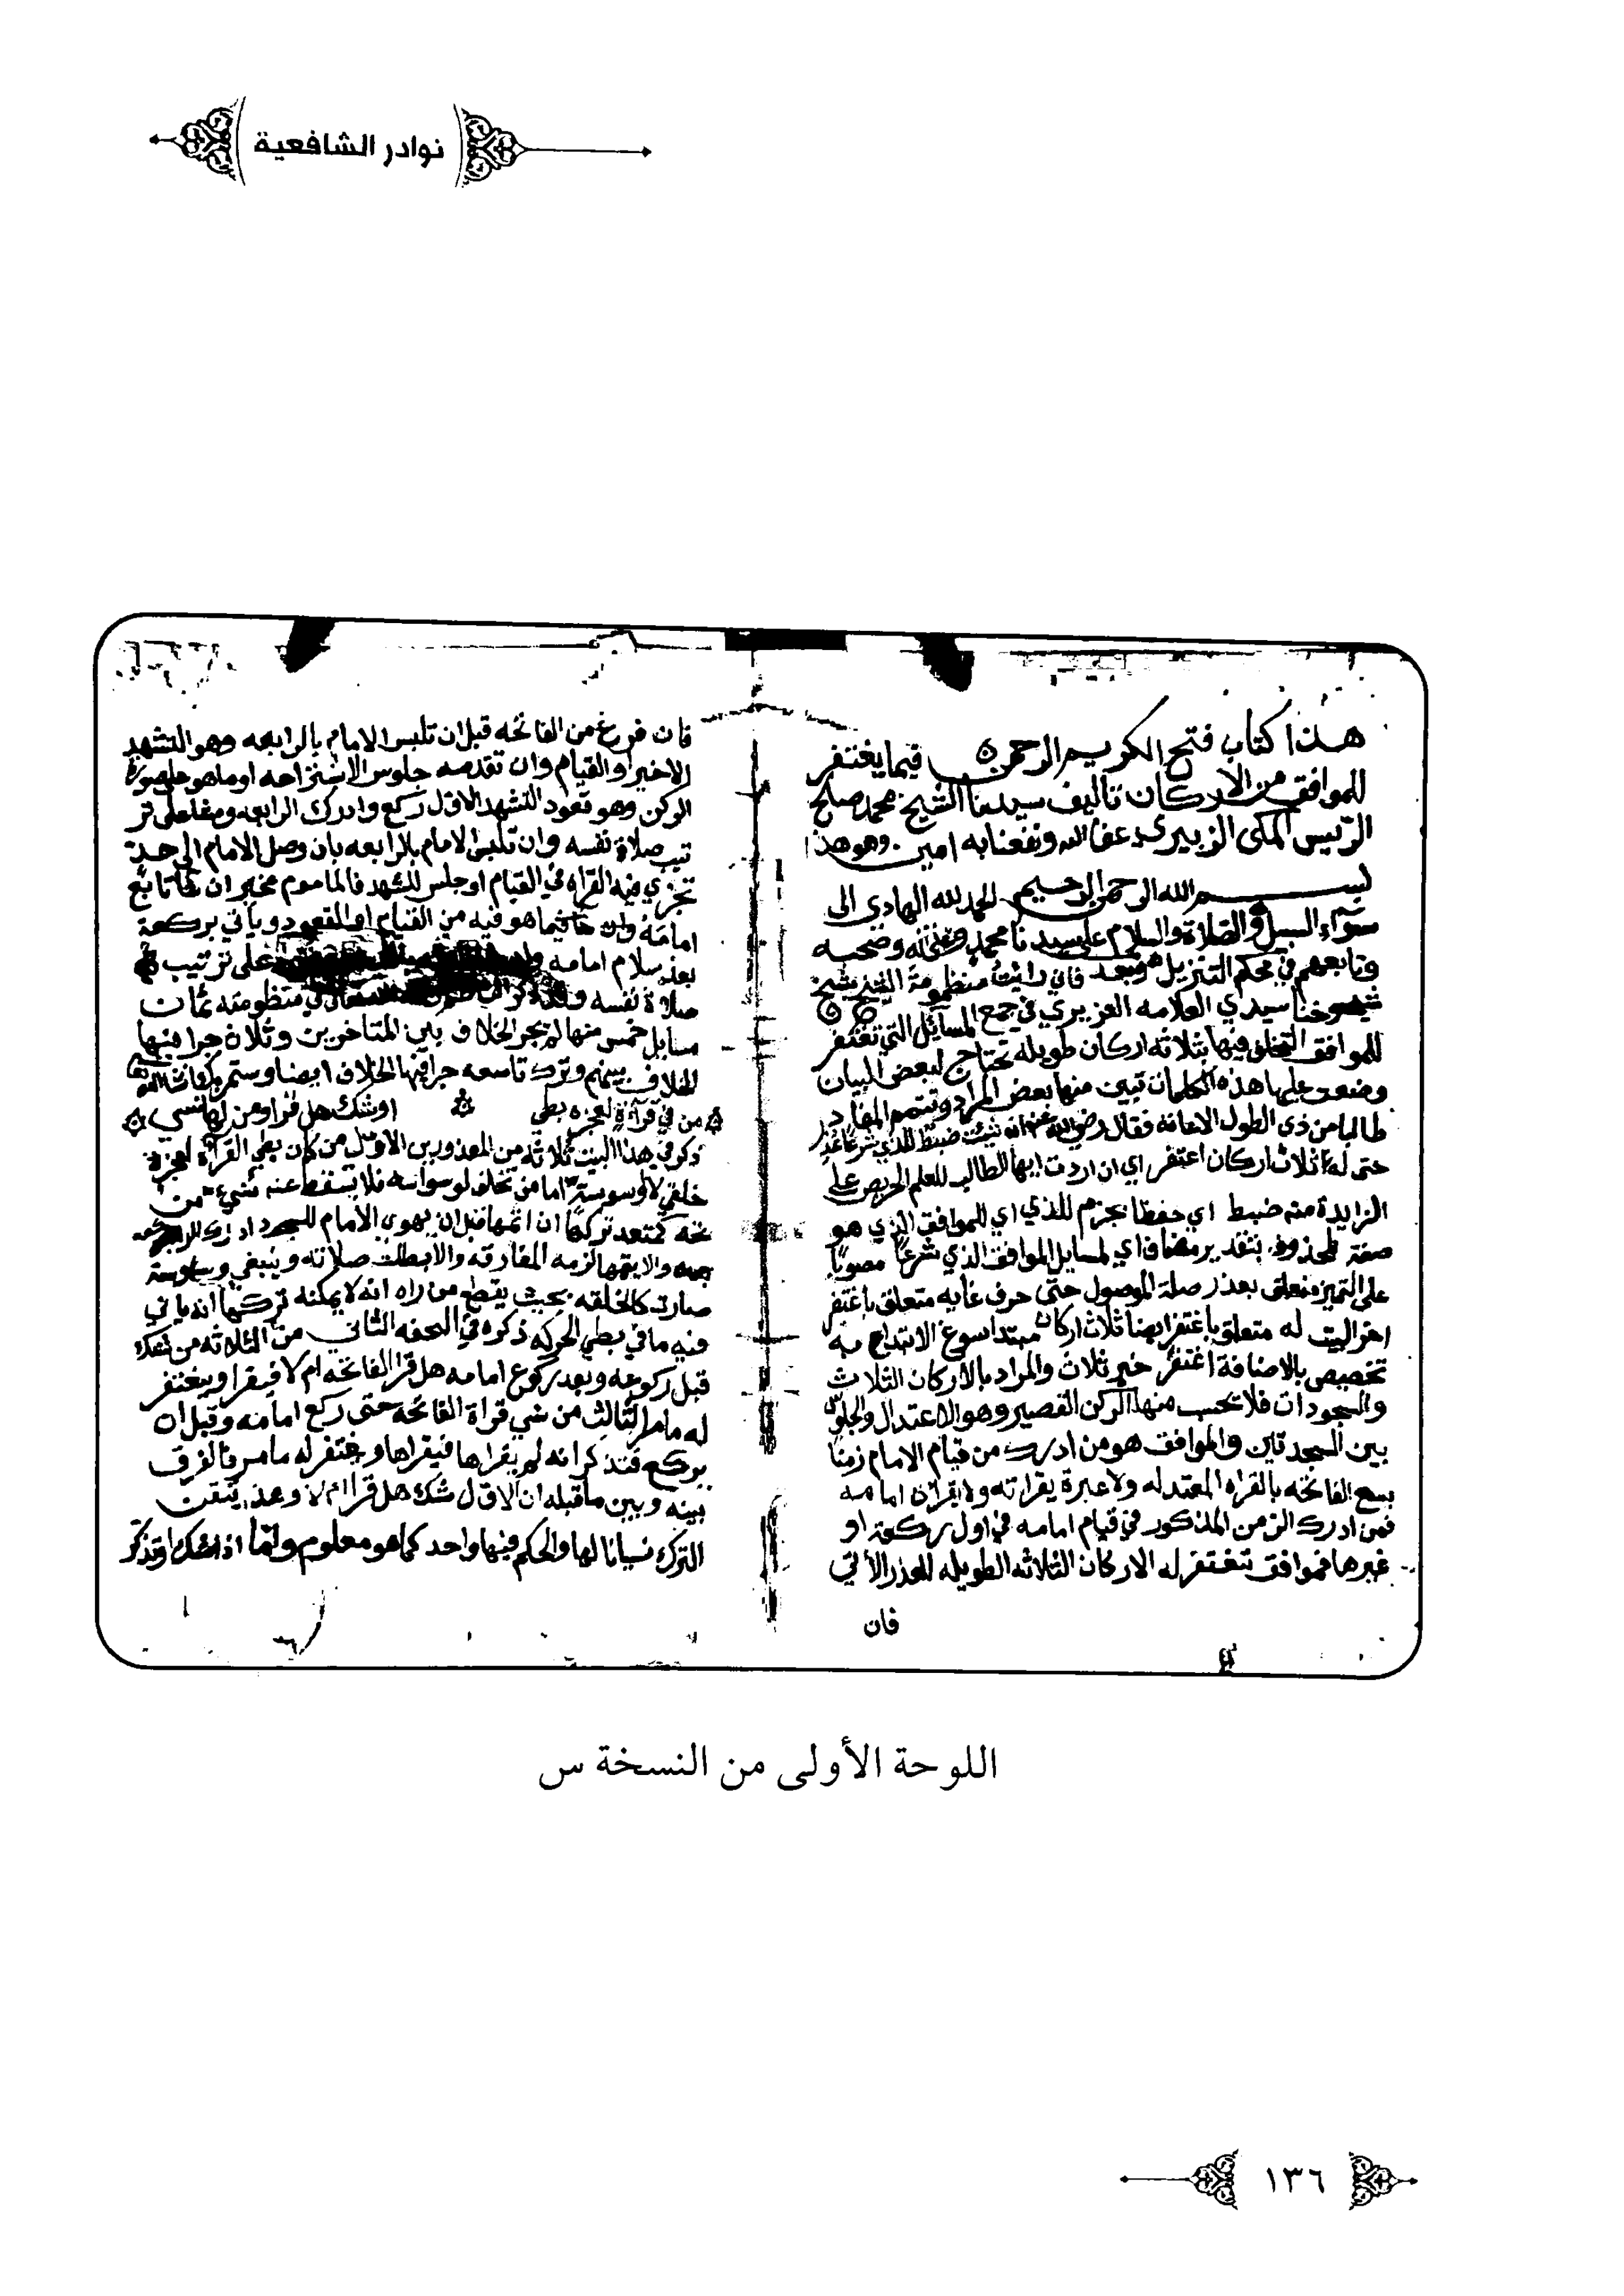 نوادر الشافعية
هذا كتاب فتح الكريم الرحمن فيما يغتفر
للموافق من الاركان تاليف سيدنا الشيخ محمد صلح
الريس المكى الزبيري عفا الله ونفعنا به امين . وهو هذا
بسم الله الرحمن الرحيم الحمد لله الهادي الى
سواء السبيل والصلاة والسلام على سيدنا محمد وعلى اله وصحبه
وتابعهم في محكم التنزيل وبعد فاني رائيت منظومة الشيخ شيخ
شيوخنا سيدي العلامه العزيزي في جمع المسائل التي تغتفر
للموافق التخلف فيها بثلاثه اركان طويله تحتاج لبعض البيان
وضعت عليها هذه الكلمات تبين منها بعض المراد وتتمم المفاد
طالبا من ذي الطول الاعانة فقال رضي الله عنه ان شئت ضبط للذي شرعا عذر
حتى له ثلاث اركان اغتفر اي ان اردت ايها الطالب للعلم الحريص على
الزايدة منه ضبط اي حفظا بجزم للذي اي للموافق الذي هو
صفة لمحذوف بتقدير مضاف اي لمسايل الموافق الذي شرعا منصوبا
على التميز متعلق بعذر صلة الموصول حتى حرف غايه متعلق باغتفر
اخر البيت له متعلق باغتفر ايضا ثلاث اركان مبتدا سوغ الابتداء به
تخصيص بالاضافة اغتفر خبر ثلاث والمراد بالاركان الثلاث
والسجودات فلا تحسب منها الركن القصير وهو الاعتدال والجلوس
بين السجدتين والموافق هو من ادرك من قيام الامام زمنا
يسع الفاتحه بالقراه المعتدله ولا عبرة بقراته ولا بقراة امامه
فمن ادرك الزمن المذكور في قيام امامه في اول ركعة او
غيرها فموافق تغتفر له الاركان الثلاثه الطويله للعذر الأتي
فان
فان فرغ من الفاتحه قبل ان تلبس الامام بالرابعه وهو التشهد
الاخير او القيام وان تقدمه جلوس الاستراحه او ما هو على صورة
الركن وهو قعود التشهد الاول ركع وادرك الرابعه ومشا على تر
تيب صلاة نفسه وان تلبس الامام بالرابعه بان وصل الامام الى حد
تجزي فيه القراه في القيام او جلس للتشهد فالماموم مخير ان شا تابع
امامه وان شا فيما هو فيه من القيام او القعود وياتي بركعة
بعد سلام امامه على ترتيب
صلاة نفسه وقد ذكر في منظومته ثمان
مسايل خمس منها لم يجر الخلاف بين المتاخرين وثلاثة جرا فيها
الخلاف بينهم وترك تاسعه جرا فيها الخلاف ايضا
من في قراءة لعجزه بطي او شك هل قرا ومن لها نسي
ذكر في هذا البيت ثلاثه من المعذورين الاول من كان بطي القراة لعجز
خلقي لا لوسوسة اما من تخلف لوسواسه فلا يسقط عنه شيء من
تحه كمتعمد تركها ان اتمها قبل ان يهوي الامام للسجود ادرك الركعه
والا يتمها لزمه المفارقه والا بطلت صلاته وينبغي وسوسة
صارت كالخلقه بحيث يقطع من راه انه لا يمكنه تركها انه ياتي
فيه ما في بطي الحركه ذكره في التحفه الثاني من الثلاثه من شك
قبل ركوعه وبعد ركوع امامه هل قرا الفاتحه ام لا فيقرا ويغتفر
له ما مر الثالث من نسي قراة الفاتحة حتى ركع امامه وقبل ان
يركع فتذكر انه لم يقراها فيقراها ويغتفر له ما مر فالفرق
بينه وبين ما قبله ان الاول شك هل قرا ام لا وهذا تيقن
الترك نسيانا لها والحكم فيها واحد كما هو معلوم واما اذا شك او تذكر
اللوحة الأولى من النسخة س
١٣٦